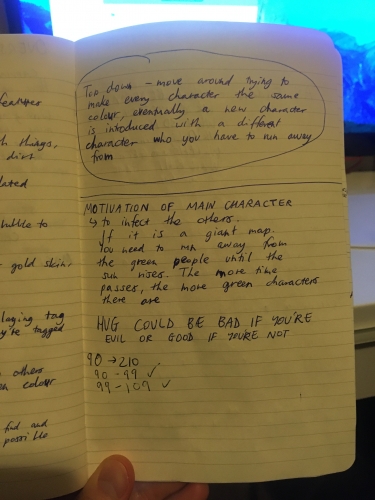 feather
h things,
dirt
lated
bubble to
gold skin.
laying tag
're tagged
others
colour
find and
possible
Top down - move around trying to
make every character the same
colour, eventually a new character
is introduced with a different
character who you have to run away
from
MOTIVATION OF MAIN CHARACTER
↳ to infect the others.
If it is a giant map.
You need to run away from
the green people until the
sun rises. The more time
passes, the more green characters
there are
HUG COULD BE BAD IF YOU'RE
EVIL OR GOOD IF YOU'RE NOT
90 → 210
90 - 99 ✓
99 - 109 ✓